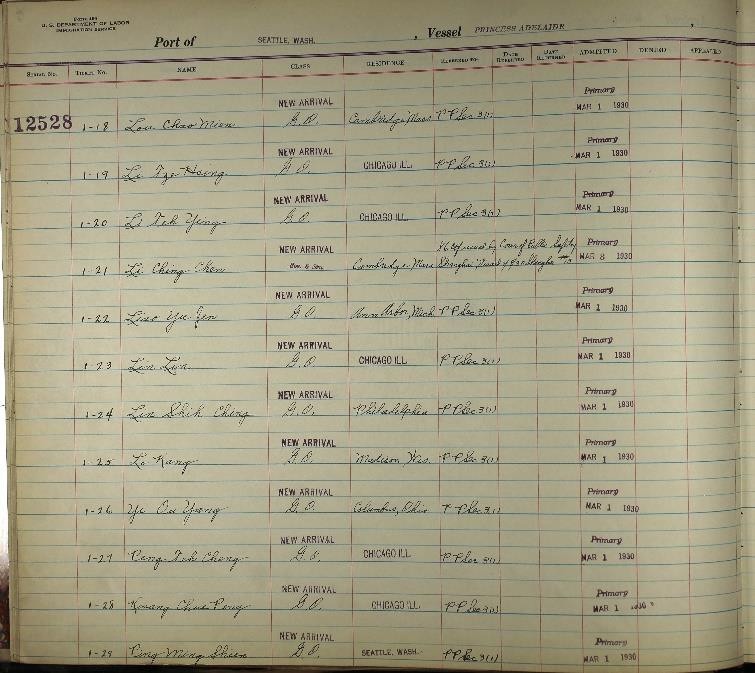 Form 489
U. S. DEPARTMENT OF LABOR
IMMIGRATION SERVICE
Port of SEATTLE, WASH. , Vessel PRINCESS ADELAIDE ,
SERIAL NO. TICKET NO. NAME CLASS RESIDENCE REFERRED TO: DATE REPORTED DATE RETURNED ADMITTED DENIED APPEALED
NEW ARRIVAL Primary
12528 1-18 Lou Chao Mien G.O. Cambridge Mass PP Sec 3(1) MAR 1 1930
NEW ARRIVAL Primary
1-19 Li Tze Hsing G.O. CHICAGO ILL. PP Sec 3(1) MAR 1 1930
NEW ARRIVAL Primary
1-20 Li Teh Ying G.O. CHICAGO ILL. PP Sec 3(1) MAR 1 1930
NEW ARRIVAL Primary
1-21 Li Ching Chen Cambridge Mass Shanghai MAR 8 1930
NEW ARRIVAL Primary
1-22 Liao Yu Jen G.O. Ann Arbor, Mich PP Sec 3(1) MAR 1 1930
NEW ARRIVAL Primary
1-23 Lin Lin G.O. CHICAGO ILL. PP Sec 3(1) MAR 1 1930
NEW ARRIVAL Primary
1-24 Lin Shih Ching G.O. Philadelphia PP Sec 3(1) MAR 1 1930
NEW ARRIVAL Primary
1-25 Lo Kang G.O. Madison, Wis. PP Sec 3(1) MAR 1 1930
NEW ARRIVAL Primary
1-26 Yu Ou Yang G.O. Columbus, Ohio PP Sec 3(1) MAR 1 1930
NEW ARRIVAL Primary
1-27 Peng Teh Cheng G.O. CHICAGO ILL. PP Sec 3(1) MAR 1 1930
NEW ARRIVAL Primary
1-28 Kwang Chun Peng G.O. CHICAGO ILL. PP Sec 3(1) MAR 1 1930
NEW ARRIVAL Primary
1-29 Ping Ming Shien G.O. SEATTLE, WASH. PP Sec 3(1) MAR 1 1930